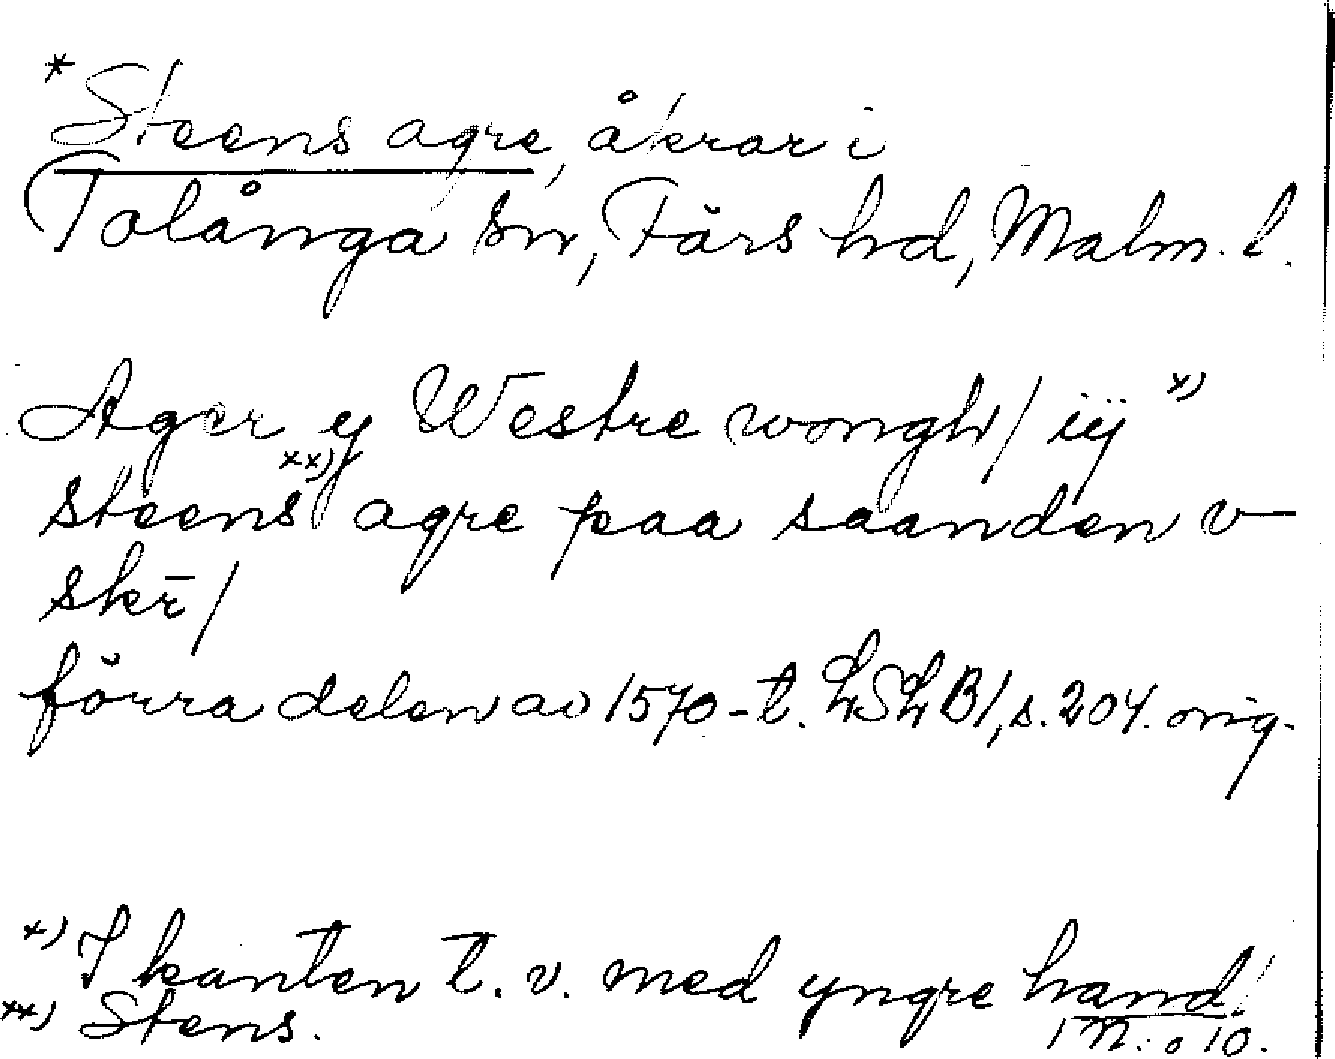 * Steens agre, åkrar i
Tolånga sn, Färs hd, Malm. l.
Ager y Westre wongh/ iij *)
steens **) agre paa saanden v
skr̄/
förra delen av 1570-t. LSLB1, s. 204. orig.
*) I kanten t. v. med yngre hand!
**) Stens.